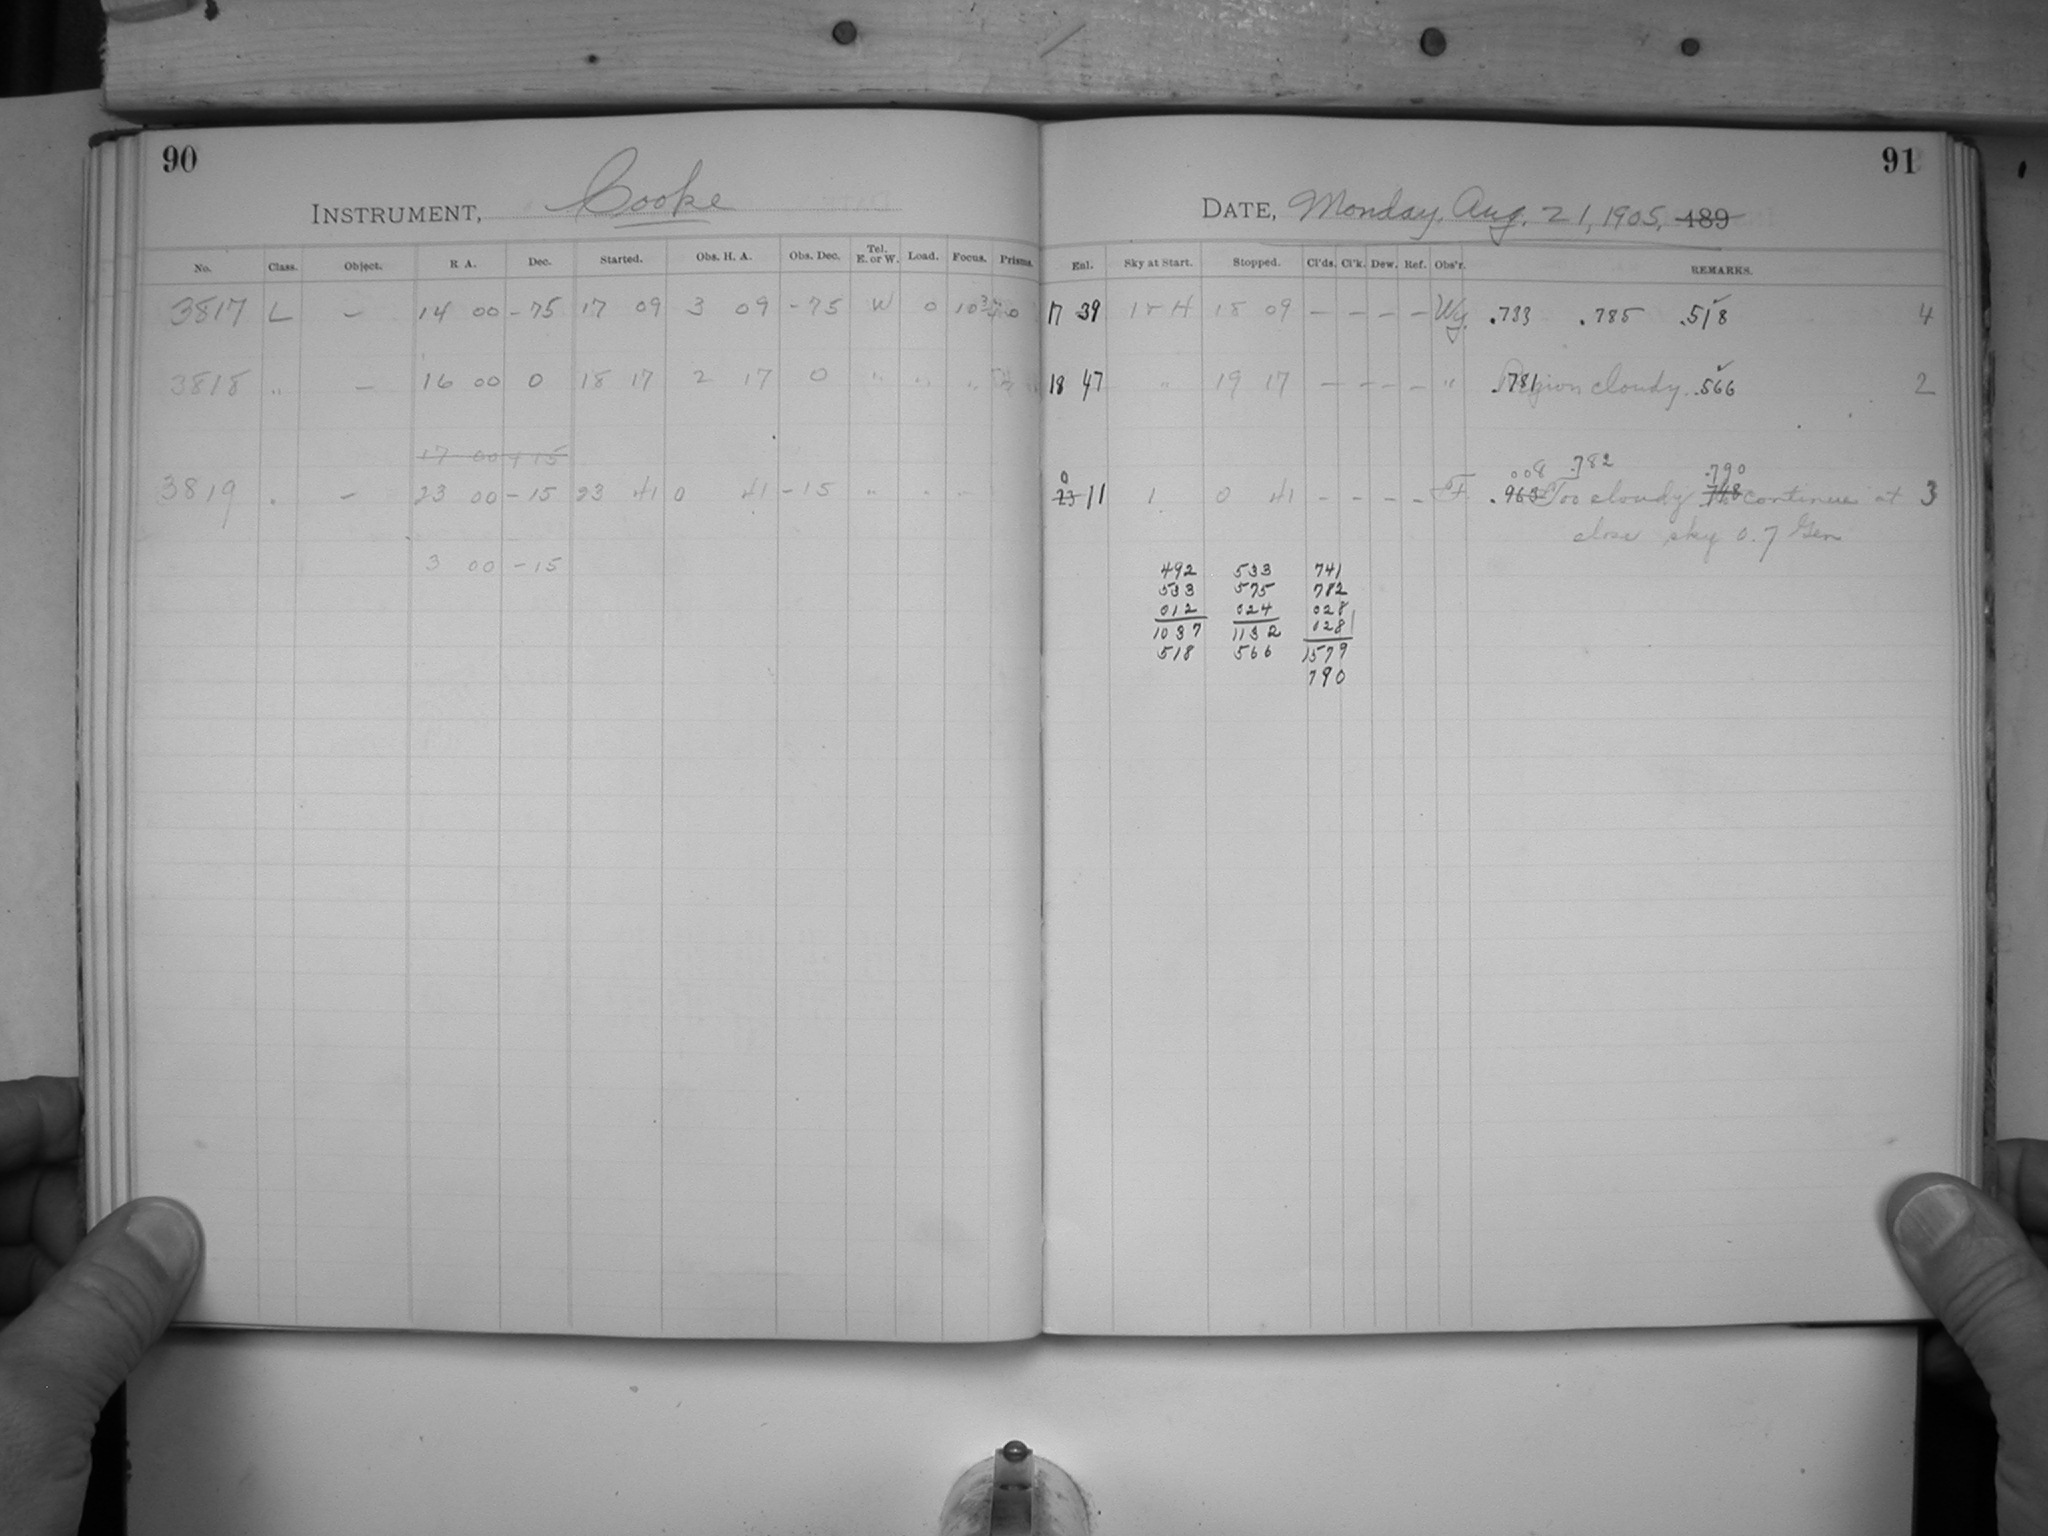 90
INSTRUMENT, Cooke
No. Class. Object. R A. Dec. Started. Obs. H. A. Obs. Dec. Tel. E. or W. Load. Focus. Prisms.
3817 L – 14 00 -75 17 09 3 09 -75 W 0
3818 " – 16 00 0 18 17 2 17 0 " " "
17 00 +15
3819 – 23 00 -15 23 41 0 41 -15 "
3 00 -15
91
DATE, Monday, Aug. 21, 1905, 189
Enl. Sky at Start. Stopped. Cl'ds. Cl'k. Dew. Ref. Obs'r. REMARKS.
17 39 18 09 – – – – Wy. .733 .785 .518 4
18 47 " 19 17 – – – – " .781 Region cloudy. .566 2
0 008 .782 .790
23 11 1 0 41 – – – – .963 Too cloudy to 748 continue at 3
close sky 0.7 Gen
492 533 741
533 575 782
012 024 028
1037 1132 028
518 566 1579
790